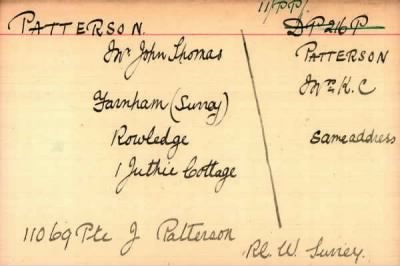 11/PP/.
PATTERSON.
Mr. John Thomas
Farnham (Surrey)
Rowledge
1 Juthie Cottage
DP 216 P
PATTERSON
Mrs K.C
Same address
11069 Pte J Patterson
Rl. W. Surrey.